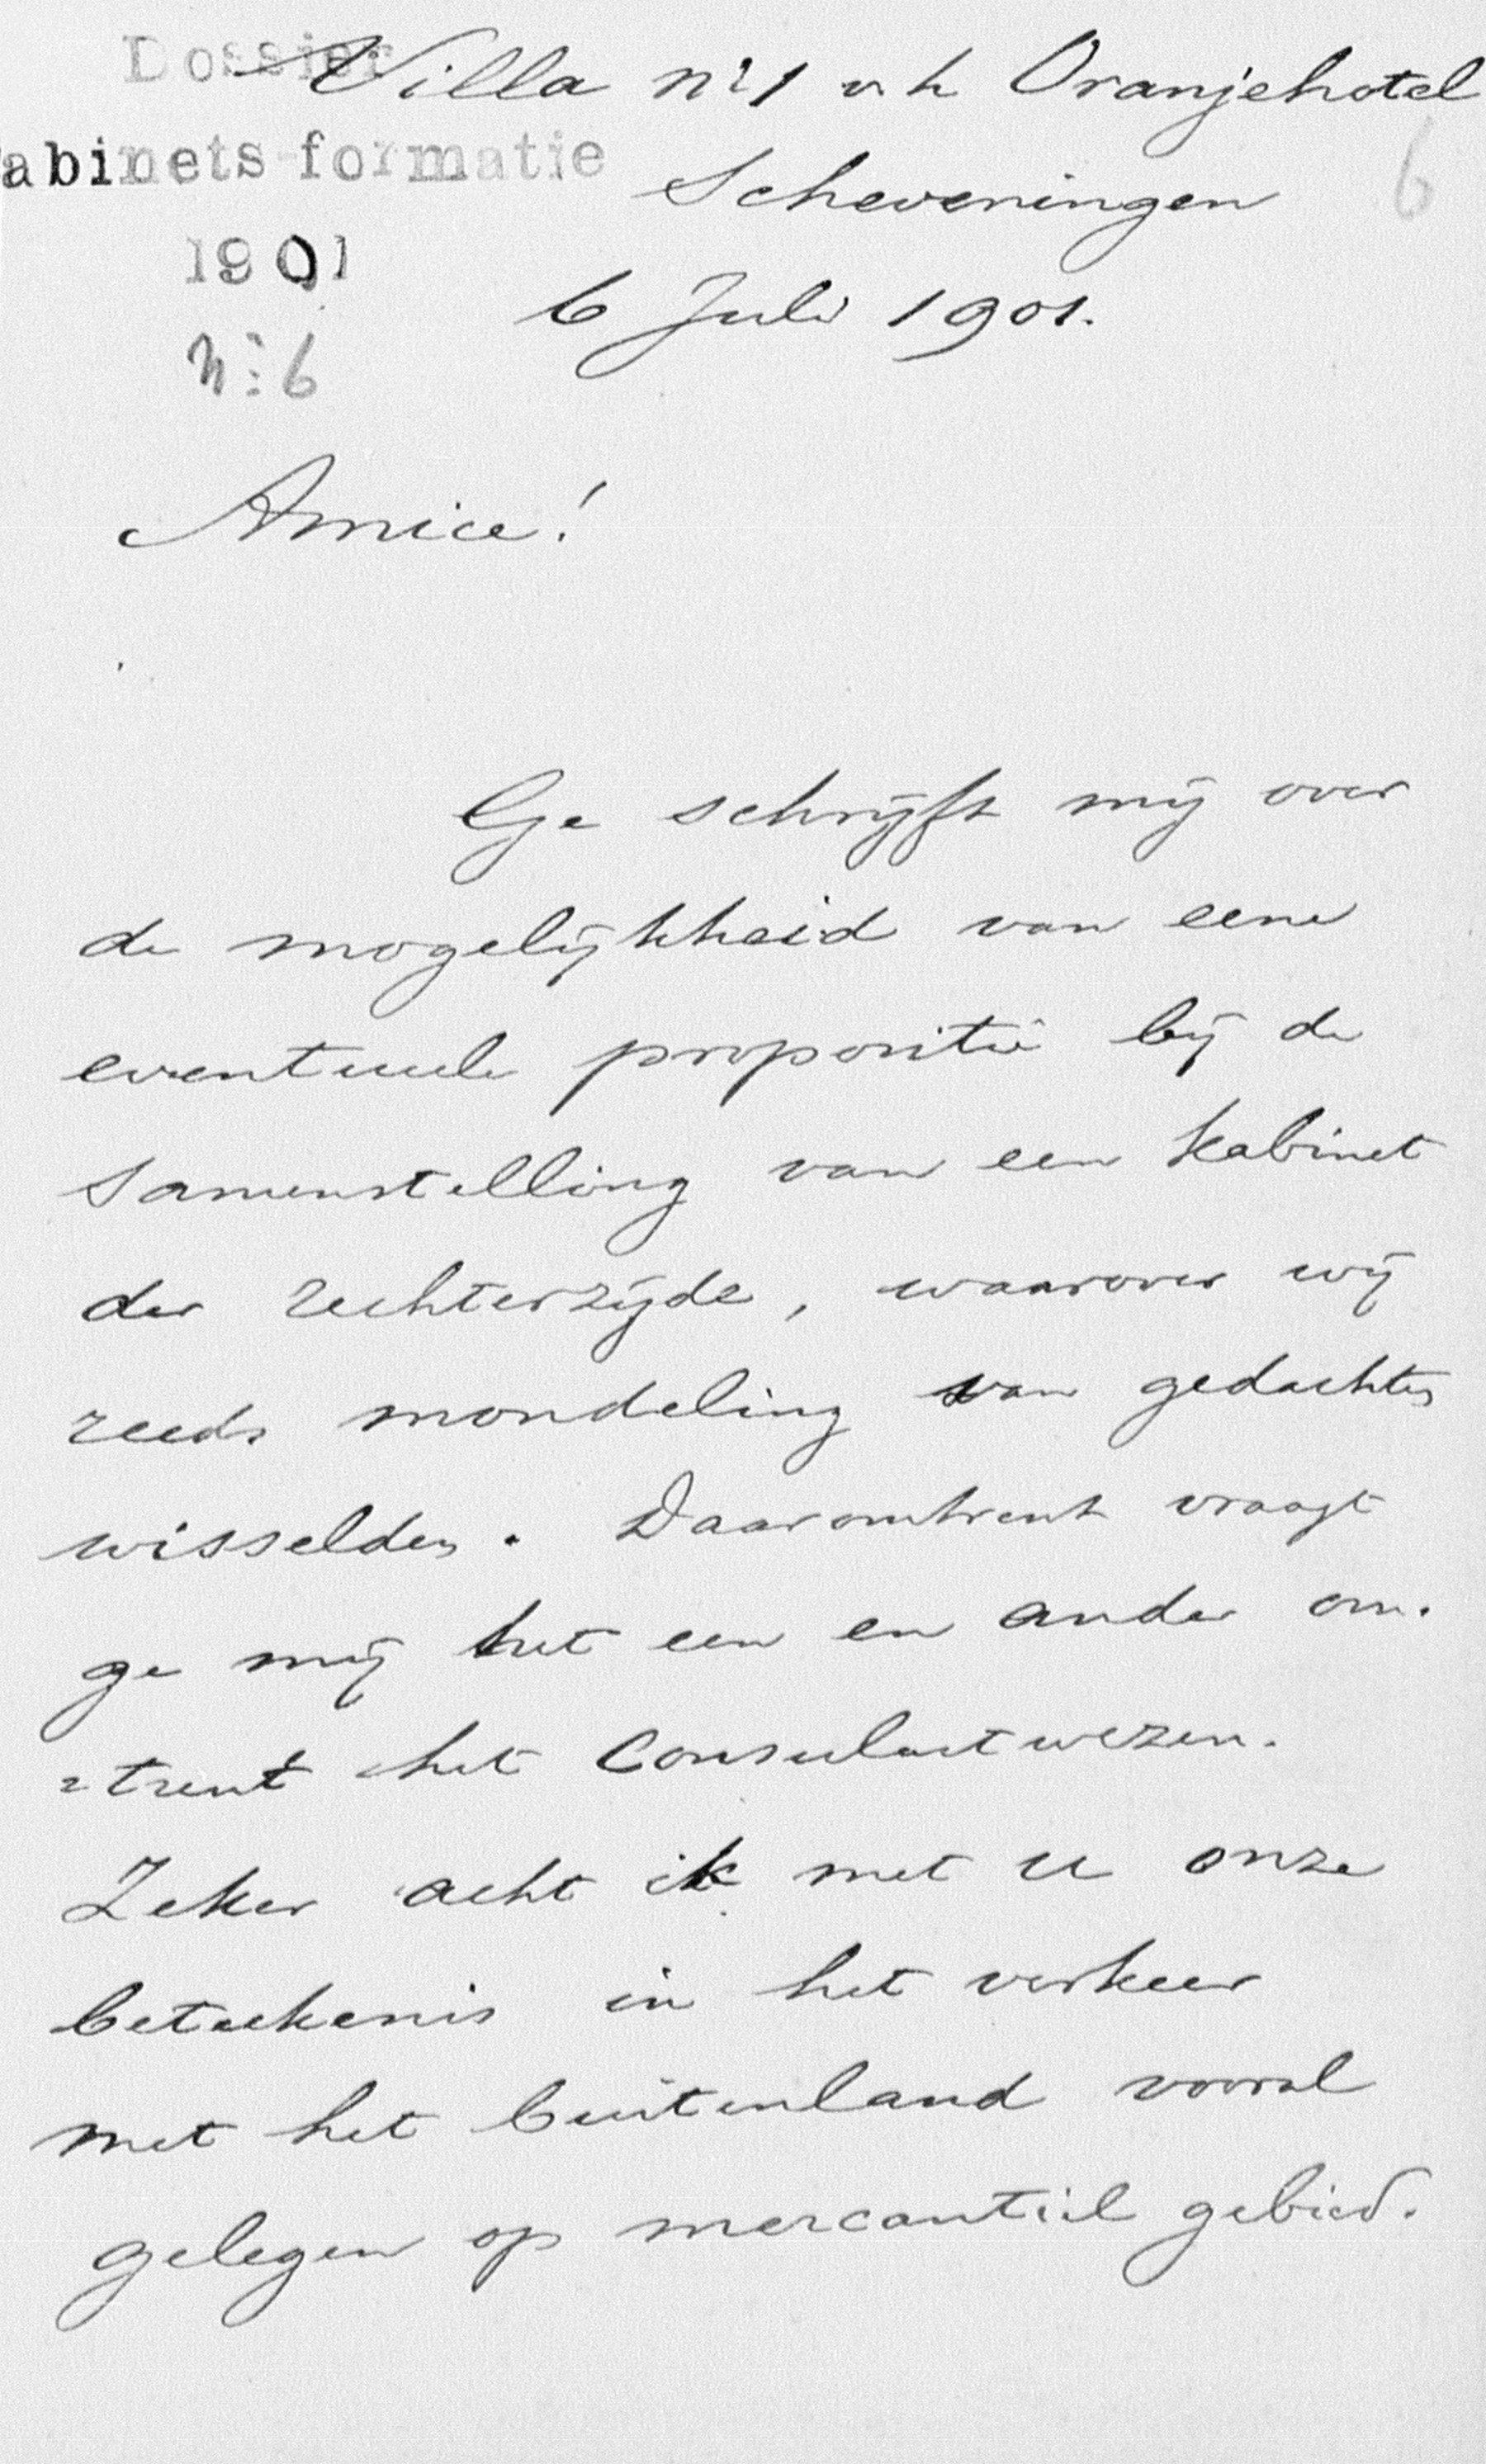 Dossier
Villa No 1 v. h. Oranjehotel
abinets-formatie
Scheveningen
6
1901
6 Juli 1901.
No 6
Amice!
Ge schrijft mij over
de mogelijkheid van eene
eventueele propositie bij de
samenstelling van een kabinet
der rechterzijde, waarover wij
reeds mondeling van gedachten
wisselden. Daaromtrent vraagt
ge mij het een en ander om-
=trent het Consulaatwezen.
Zeker acht ik met u onze
beteekenis in het verkeer
met het buitenland vooral
gelegen op mercantiel gebied.